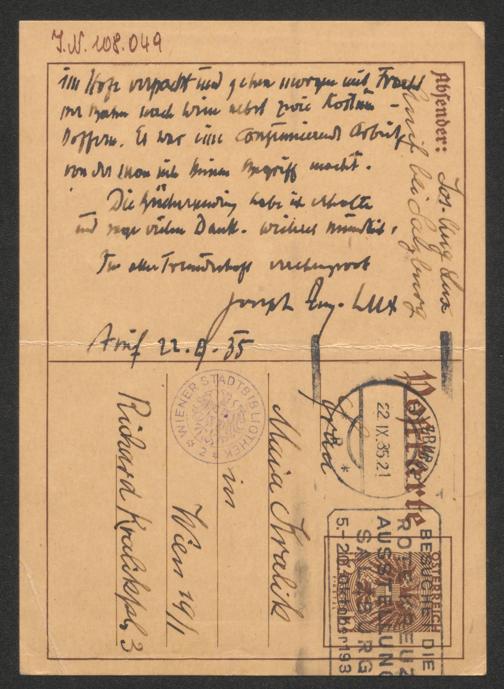 J.N. 108.049
im Hofe verpackt und gehen morgen mit Fracht
per Bahn nach Wien nebst zwei Kostüm-
koffern. Es war eine Arbeit,
von der man sich keinen Begriff macht.
Die habe ich erhalten
und sage vielen Dank. mündlich.
In aller Freundschaft
Joseph Aug. Lux
Anif 22.9.35
Absender: Jos. Aug. Lux
Anif bei Salzburg
Postkarte
22.IX.35.21
*
BESUCHE DIE
ROTE KREUZ
AUSSTELLUNG
SALZBURG
5.-20. Oktober 193
ÖSTERREICH
Maia Kralik
in
Wien 19/1
Richard Kralikpl. 3
WIENER STADTBIBLIOTHEK